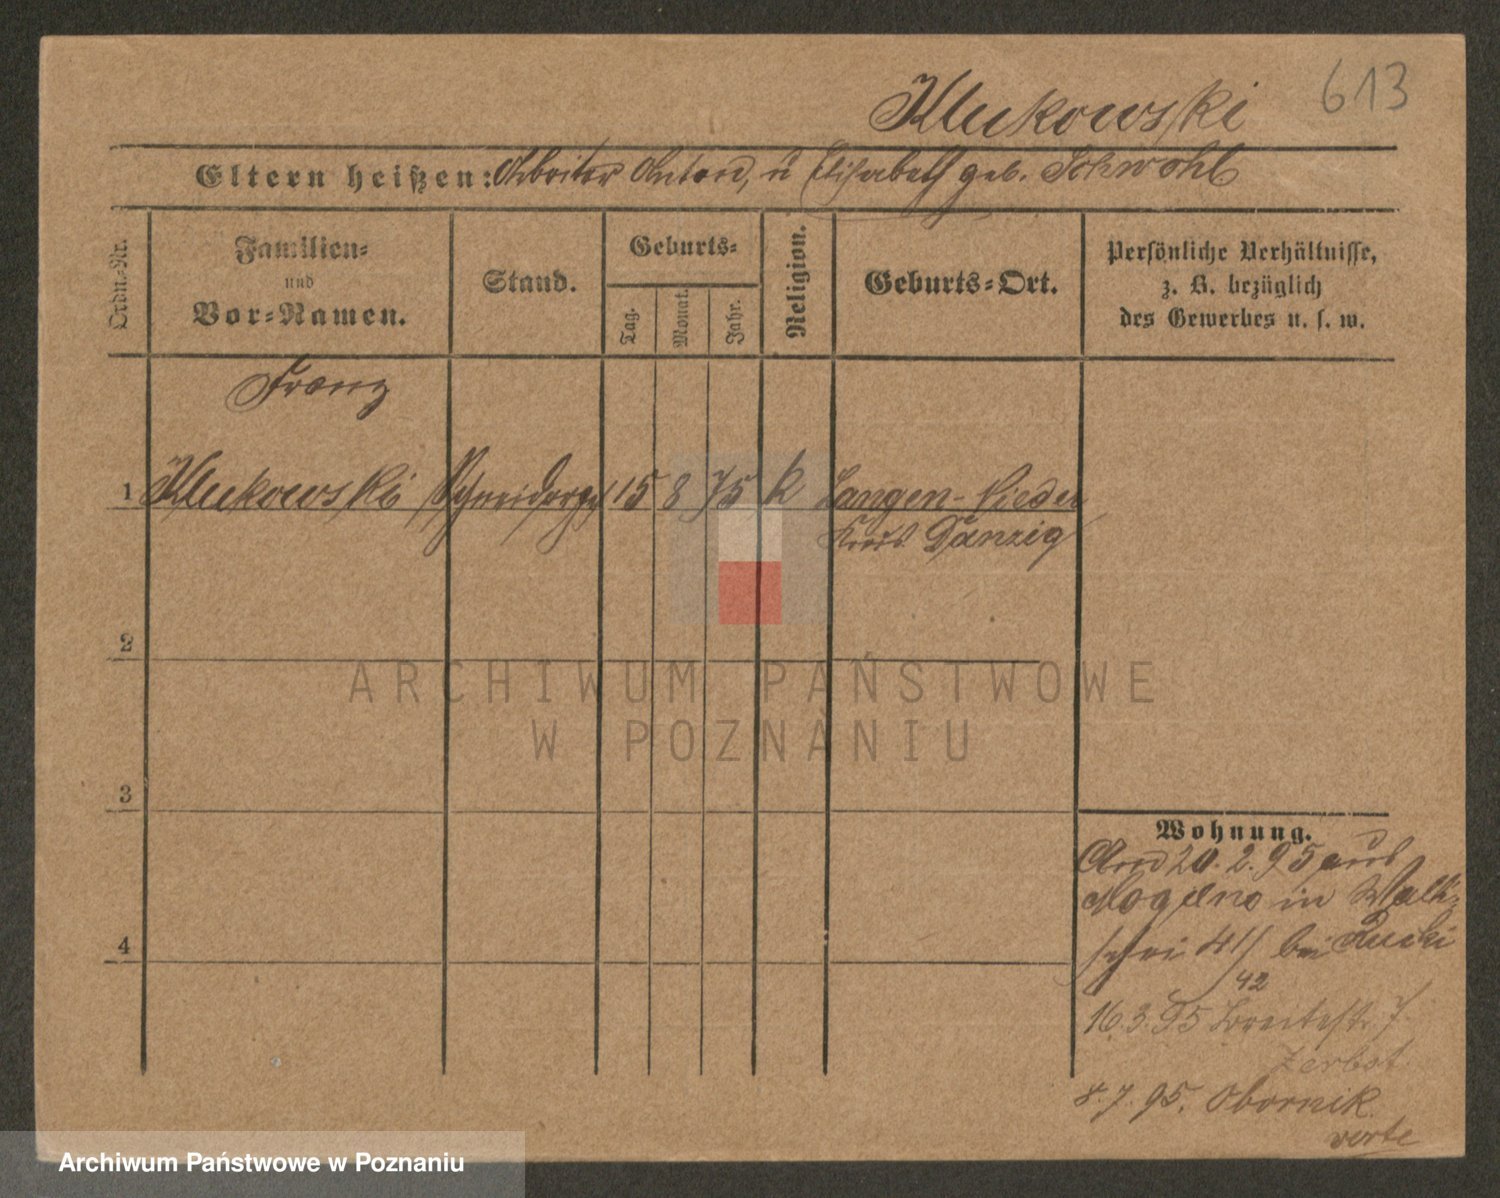 613
Klukowski
Eltern heißen: Arbeiter Anton, u Elisabeth geb. Schwohl
Ordn.-Nr.
Familien-
und
Vor-Namen.
Stand.
Geburts-
Tag.
Monat.
Jahr.
Religion.
Geburts-Ort.
Persönliche Verhältnisse,
z. B. bezüglich
des Gewerbes u. s. w.
Franz
1 Klukowski Schneiderges 15 8 75 k Langen-
Kreis Danzig
2
ARCHIWUM PAŃSTWOWE
W POZNANIU
3
4
Wohnung.
20.2.95 aus
Mogilno in Walli-
schei 41/ bei
42
16.3.95 Breitestr 7.
Zerbst
8.7.95. Obornik
verte
Archiwum Państwowe w Poznaniu